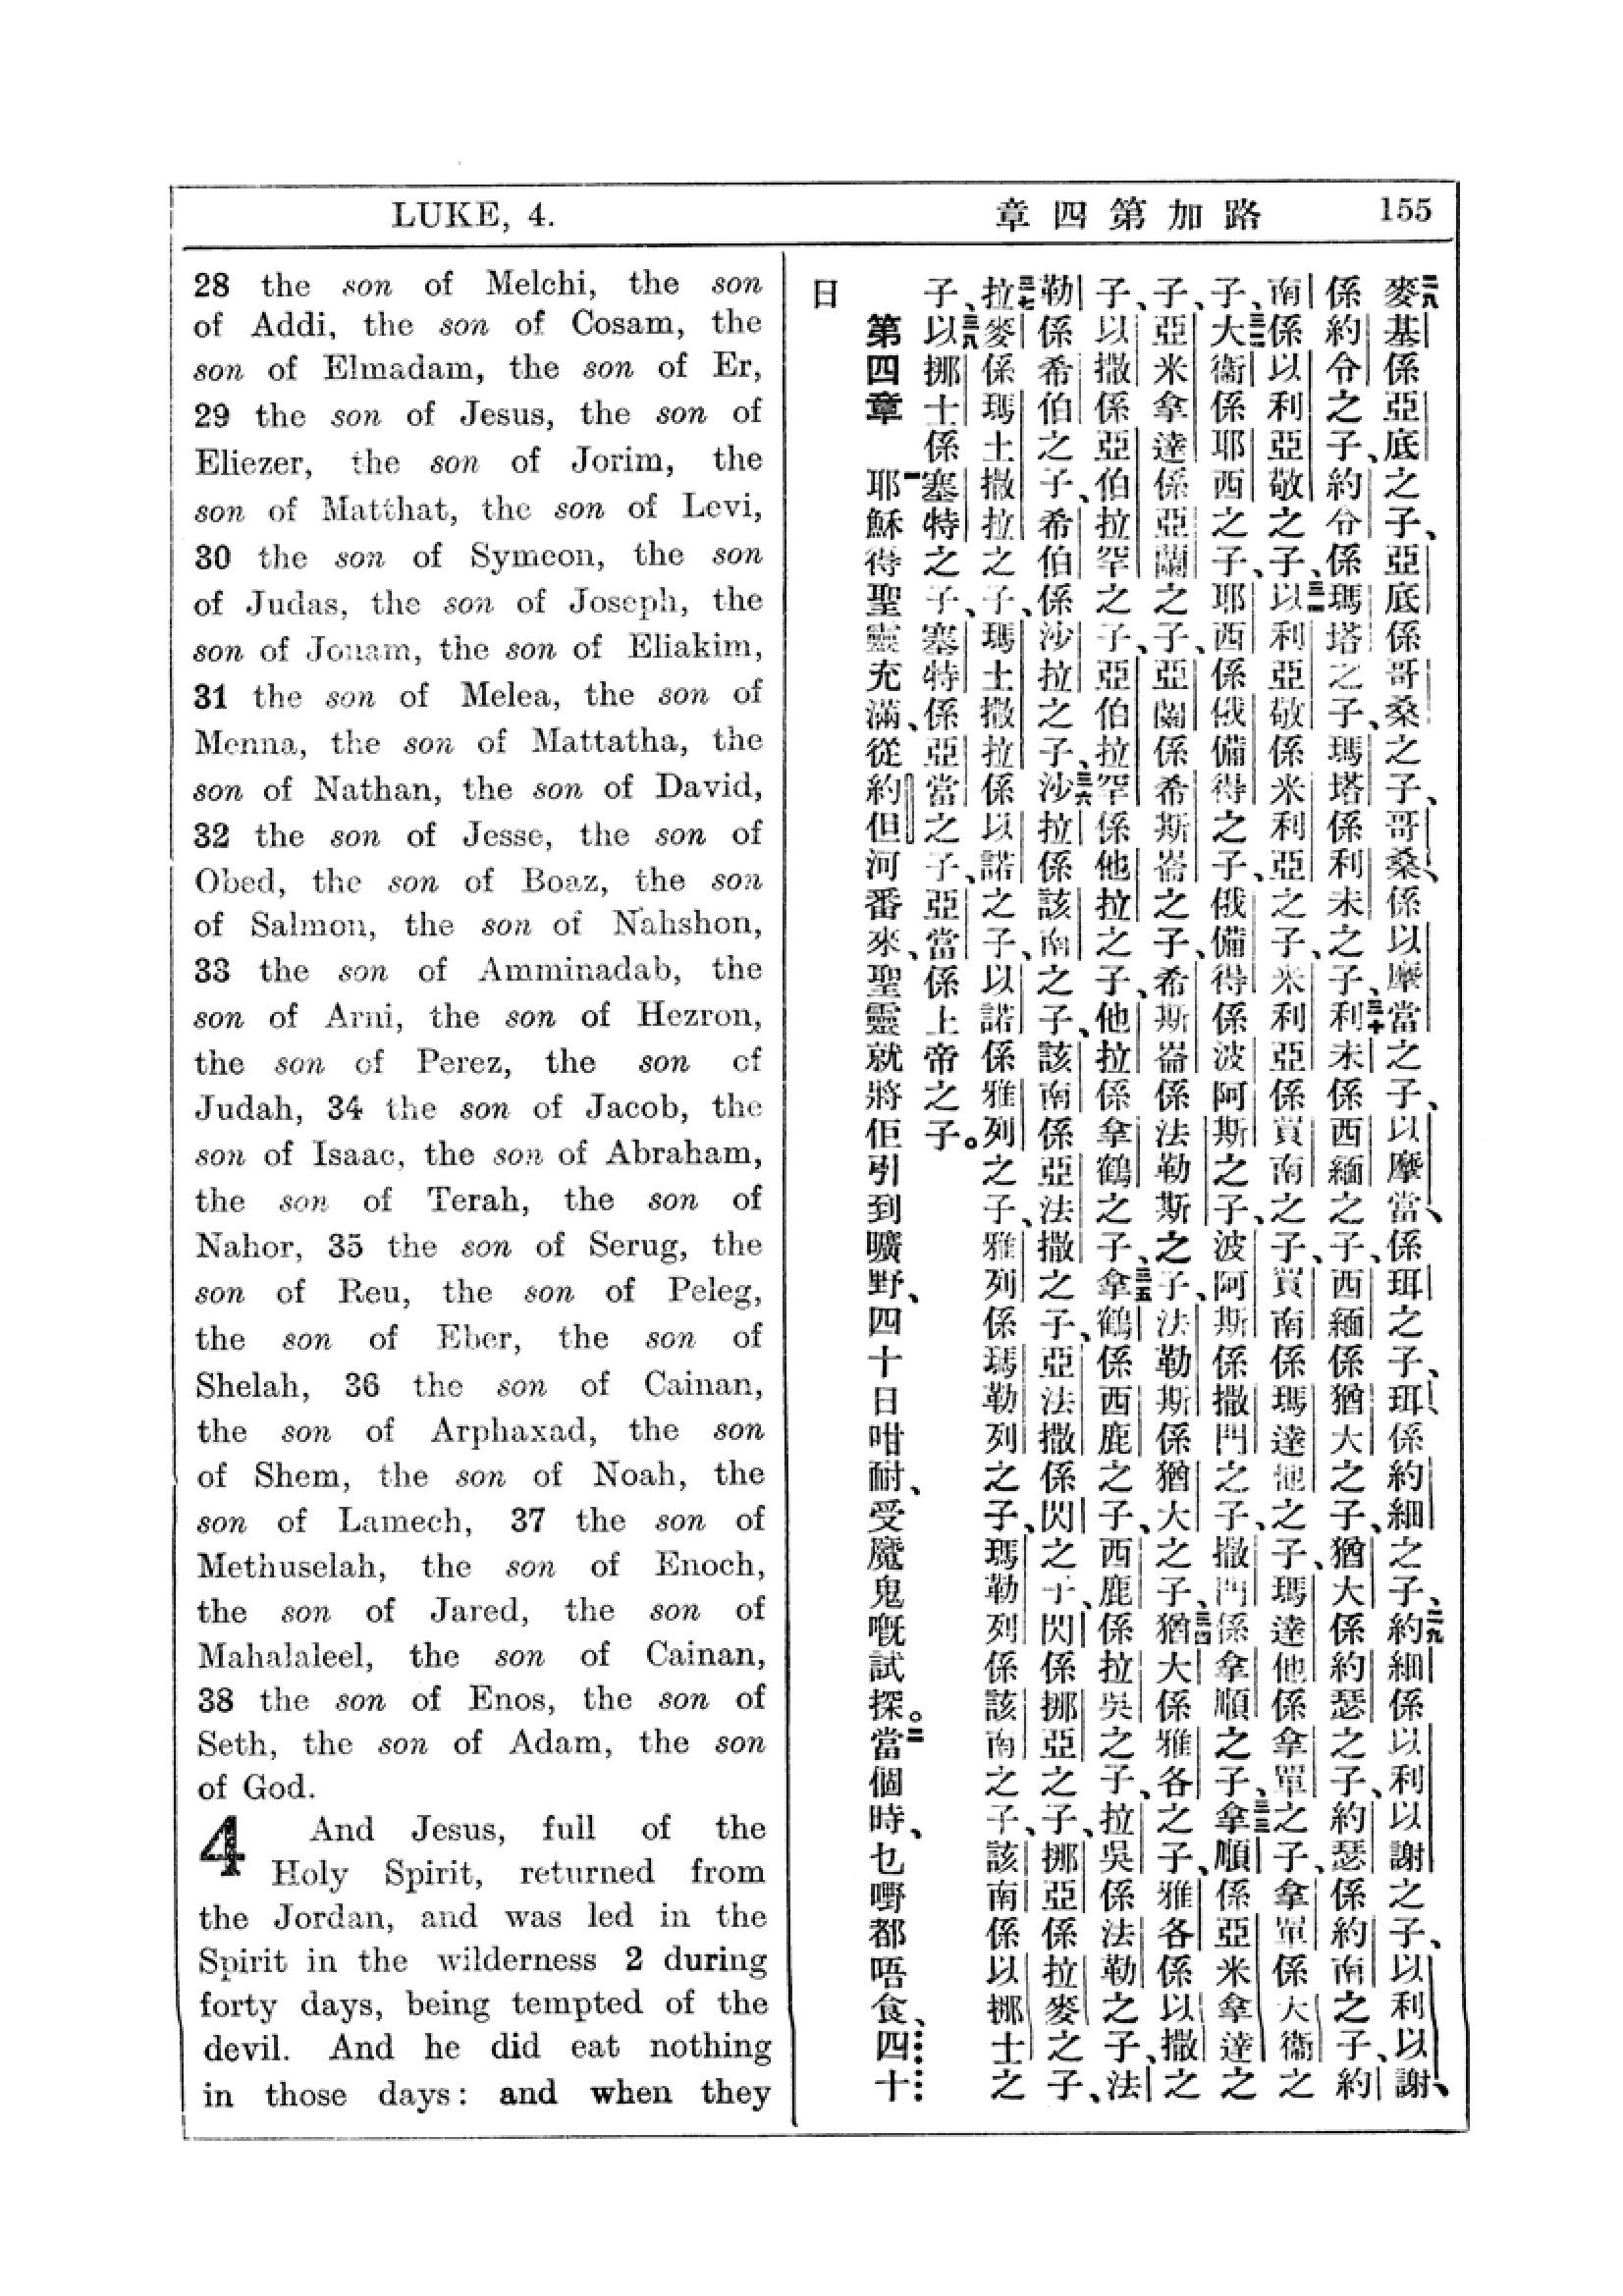 LUKE, 4.
章四第加路 155
28 the son of Melchi, the son
of Addi, the son of Cosam, the
son of Elmadam, the son of Er,
29 the son of Jesus, the son of
Eliezer, the son of Jorim, the
son of Matthat, the son of Levi,
30 the son of Symeon, the son
of Judas, the son of Joseph, the
son of Jonam, the son of Eliakim,
31 the son of Melea, the son of
Menna, the son of Mattatha, the
son of Nathan, the son of David,
32 the son of Jesse, the son of
Obed, the son of Boaz, the son
of Salmon, the son of Nahshon,
33 the son of Amminadab, the
son of Arni, the son of Hezron,
the son of Perez, the son of
Judah, 34 the son of Jacob, the
son of Isaac, the son of Abraham,
the son of Terah, the son of
Nahor, 35 the son of Serug, the
son of Reu, the son of Peleg,
the son of Eber, the son of
Shelah, 36 the son of Cainan,
the son of Arphaxad, the son
of Shem, the son of Noah, the
son of Lamech, 37 the son of
Methuselah, the son of Enoch,
the son of Jared, the son of
Mahalaleel, the son of Cainan,
38 the son of Enos, the son of
Seth, the son of Adam, the son
of God.
4 And Jesus, full of the
Holy Spirit, returned from
the Jordan, and was led in the
Spirit in the wilderness 2 during
forty days, being tempted of the
devil. And he did eat nothing
in those days: and when they
二八麥基係亞底之子、亞底係哥桑之子、哥桑係以摩當之子、以摩當係珥之子、珥係約細之子、二九約細係以利以謝之子、以利以謝
係約令之子、約令係瑪塔之子、瑪塔係利未之子、三十利未係西緬之子、西緬係猶大之子、猶大係約瑟之子、約瑟係約南之子、約
南係以利亞敬之子、三一以利亞敬係米利亞之子、米利亞係買南之子、買南係瑪達他之子、瑪達他係拿單之子、拿單係大衞之
子、三二大衞係耶西之子、耶西係俄備得之子、俄備得係波阿斯之子、波阿斯係撒門之子、撒門係拿順之子、三三拿順係亞米拿達之
子、亞米拿達係亞蘭之子、亞蘭係希斯崙之子、希斯崙係法勒斯之子、法勒斯係猶大之子、三四猶大係雅各之子、雅各係以撒之
子、以撒係亞伯拉罕之子、亞伯拉罕係他拉之子、他拉係拿鶴之子、三五拿鶴係西鹿之子、西鹿係拉吳之子、拉吳係法勒之子、法
勒係希伯之子、希伯係沙拉之子、三六沙拉係該南之子、該南係亞法撒之子、亞法撒係閃之子、閃係挪亞之子、挪亞係拉麥之子、
三七拉麥係瑪土撒拉之子、瑪土撒拉係以諾之子、以諾係雅列之子、雅列係瑪勒列之子、瑪勒列係該南之子、該南係以挪士之
子、三八以挪士係塞特之子、塞特係亞當之子、亞當係上帝之子。
第四章 一耶穌得聖靈充滿、從約但河番來、聖靈就將佢引到曠野、四十日咁耐、受魔鬼嘅試探。二當個時、乜嘢都唔食、四十
日